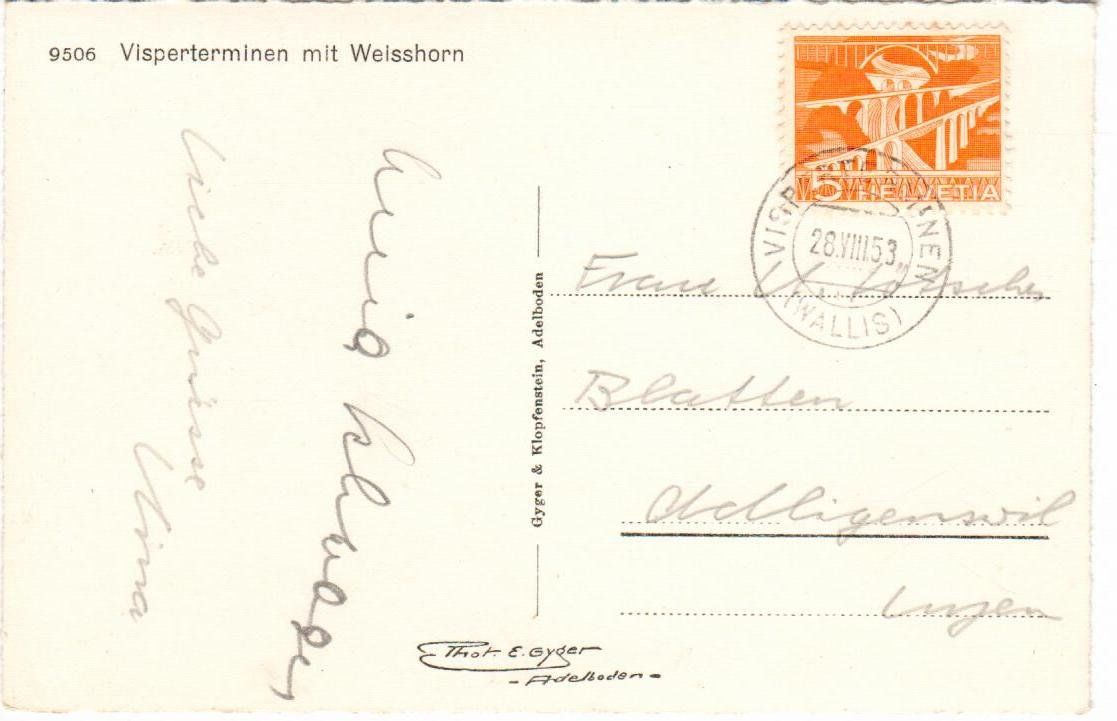 9506 Visperterminen mit Weisshorn
5 HELVETIA
VISPERTERMINEN
28.VIII.53
(WALLIS)
Liebe Grüsse
Nina
Gyger & Klopfenstein, Adelboden
Frau
Blatten
Adligenswil
Luzern
Phot. E. Gyger
- Adelboden -